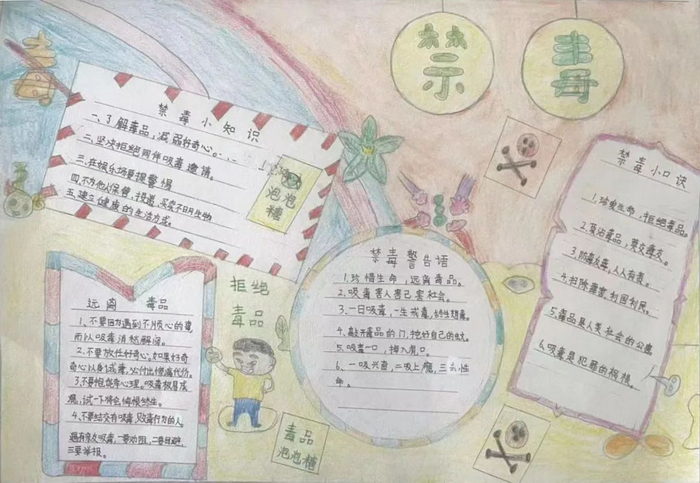 禁
毒
禁毒小知识
一、了解毒品，减弱好奇心。
二、坚决拒绝同伴吸毒邀请。
三、在娱乐场要提警惕
四、不为他人保管、投递、买卖
五、建立健康的生活方式。
泡泡糖
远离 毒品
1、不要因为遇到不顺心的
而以吸毒消愁解闷。
2、不要放任好奇心，如果好奇
心以身试毒，必付出惨痛代价。
3、不要抱侥幸心理。吸毒极易成
瘾，试一下将会悔恨终生。
4、不要结交有吸毒、贩毒行为的人。
遇有亲友吸毒，一要劝阻，二要回避，
三要举报。
拒绝
毒品
毒品
泡泡糖
禁毒警告语
1、珍惜生命，远离毒品。
2、吸毒害人害己害社会。
3、一日吸毒，一生戒毒，终生想毒。
4、敲开毒品的门，挖好自己的坟。
5、吸毒一口，掉入虎口。
6、一吸兴奋，二吸上瘾，三
禁毒小口诀
1、珍爱生命，拒绝毒品。
2、莫沾毒品，莫交毒友。
3、防毒反毒，人人有责。
4、扫除毒害，利国利民。
5、毒品是人类社会的公害
6、吸毒是犯罪的祸根。